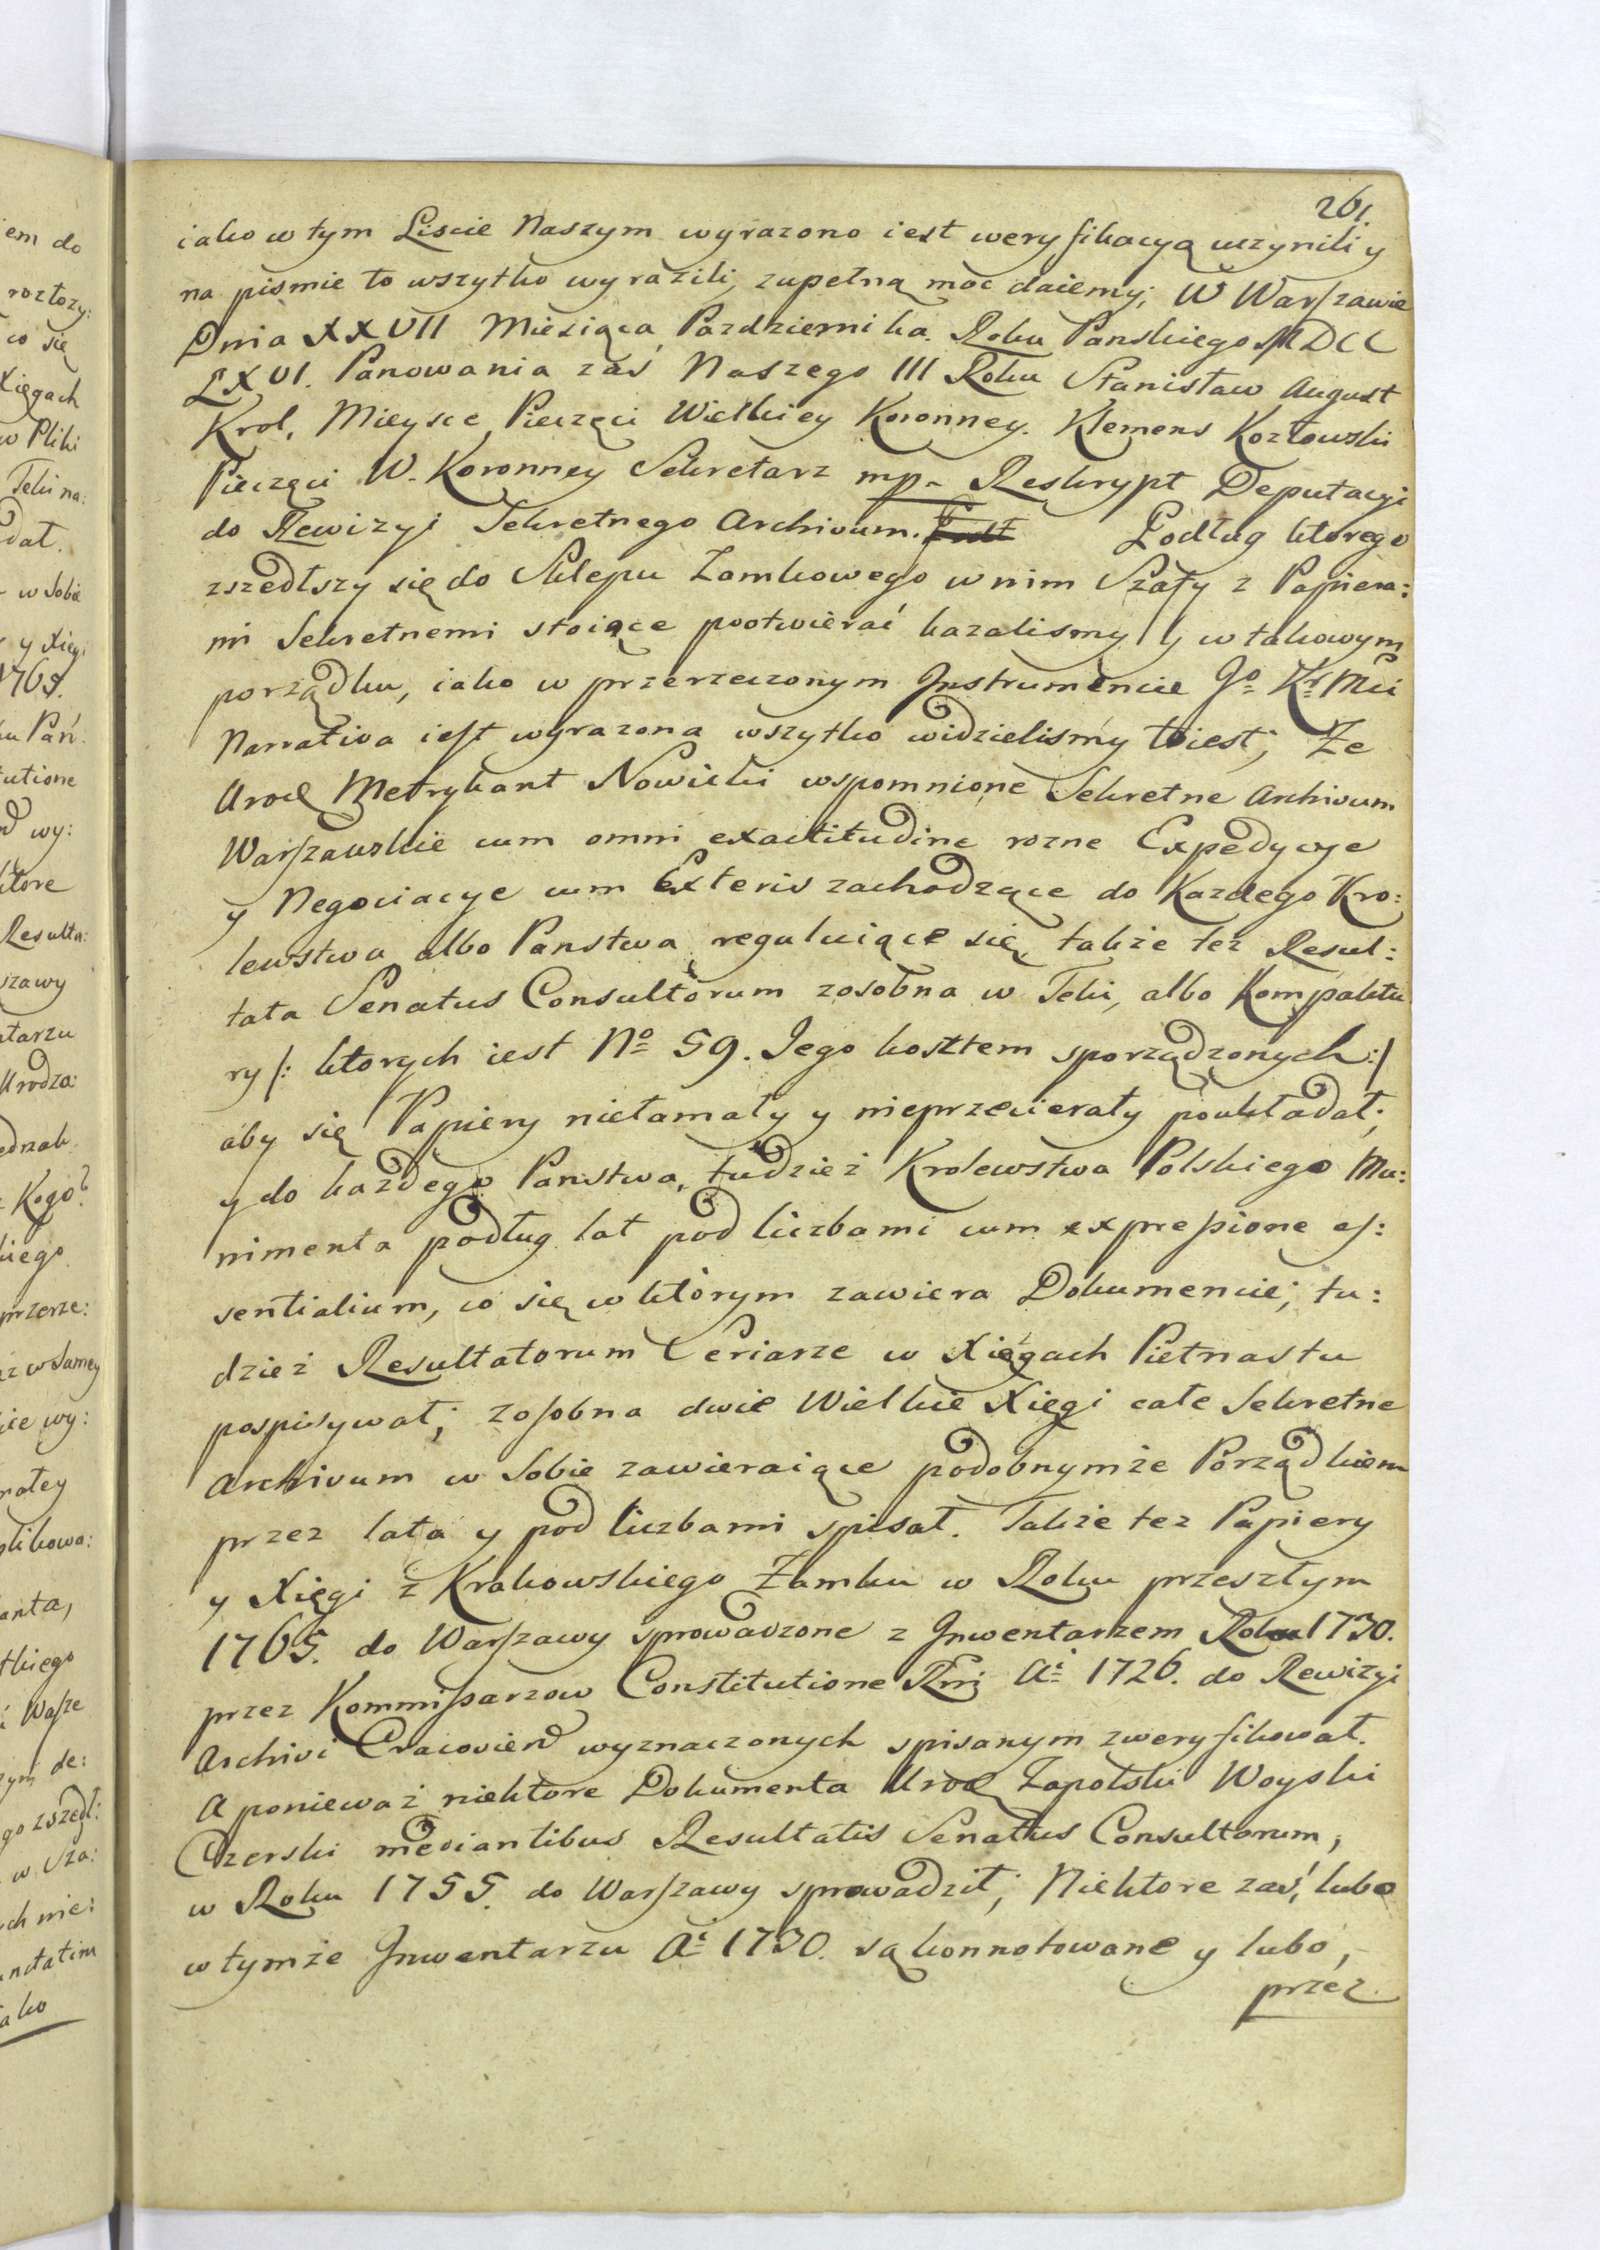 261.
iako w tym Liscie Naszym wyrazono iest weryfikacyą uczynili y
na pismie to wszytko wyrazili, zupełną moc daiemy; W Warszawie
Dnia XXVII Miesiąca Pazdziernika. Roku Panskiego MDCC
LXVI. Panowania zaś Naszego III Roku Stanisław August
Krol, Mieysce Pieczęci Wielkiey Koronney. Klemens Kozłowski
Pieczęci W. Koronney Sekretarz mp. Reskrypt Deputacyi
do Rewizyi Sekretnego Archivum. Podług ktorego
zszedłszy się do Sklepu Zamkowego w nim Szafy z Papiera:
mi Sekretnemi stoiące pootwierać kazalismy y w takowym
porządku, iako w przerzeczonym Instrumencie Jo Kr Mci
Narrativa iest wyrazona wszytko widzielismy to iest; Ze
Urod Metrykant Nowicki wspomnione Sekretne Archivum
Warszawskie cum omni exactitudine rozne Expedycye
y Negociacye cum Exteris zachodzące do Kazdego Kro:
lewstwa albo Panstwa reguluiące się, także tez Resul:
tata Senatus Consultorum zosobna w Teki, albo Kompaktu
ry /: ktorych iest No 59. Jego kosztem sporządzonych :/
aby się Papiery niełamały y nieprzecierały poukładał;
y do każdego Panstwa, tudzież Krolewstwa Polskiego Mu:
nimenta podług lat pod liczbami cum expressione es:
sentialium, co się w którym zawiera Dokumencie; tu:
dzież Resultatorum Seriarze w Xięgach Pietnastu
pospisywał; zosobna dwie Wielkie Xięgi całe Sekretne
Archivum w Sobie zawieraiące podobnymże Porządkiem
przez lata y pod liczbami spisał. Takze tez Papiery
y Xięgi z Krakowskiego Zamku w Roku przeszłym
1765. do Warszawy sprowadzone z Inwentarzem Roku 1730.
przez Kommissarzow Constitutione Rni Ai 1726. do Rewizyi
Archivi Cracovien wyznaczonych spisanym zweryfikował.
A ponieważ niektore Dokumenta Urod Zapolski Woyski
Czerski mediantibus Resultatis Senatus Consultorum,
w Roku 1755. do Warszawy sprowadził; Niektore zaś, lubo
w tymże Inwentarzu Ai 1730. są konnotowane y lubo,
przez